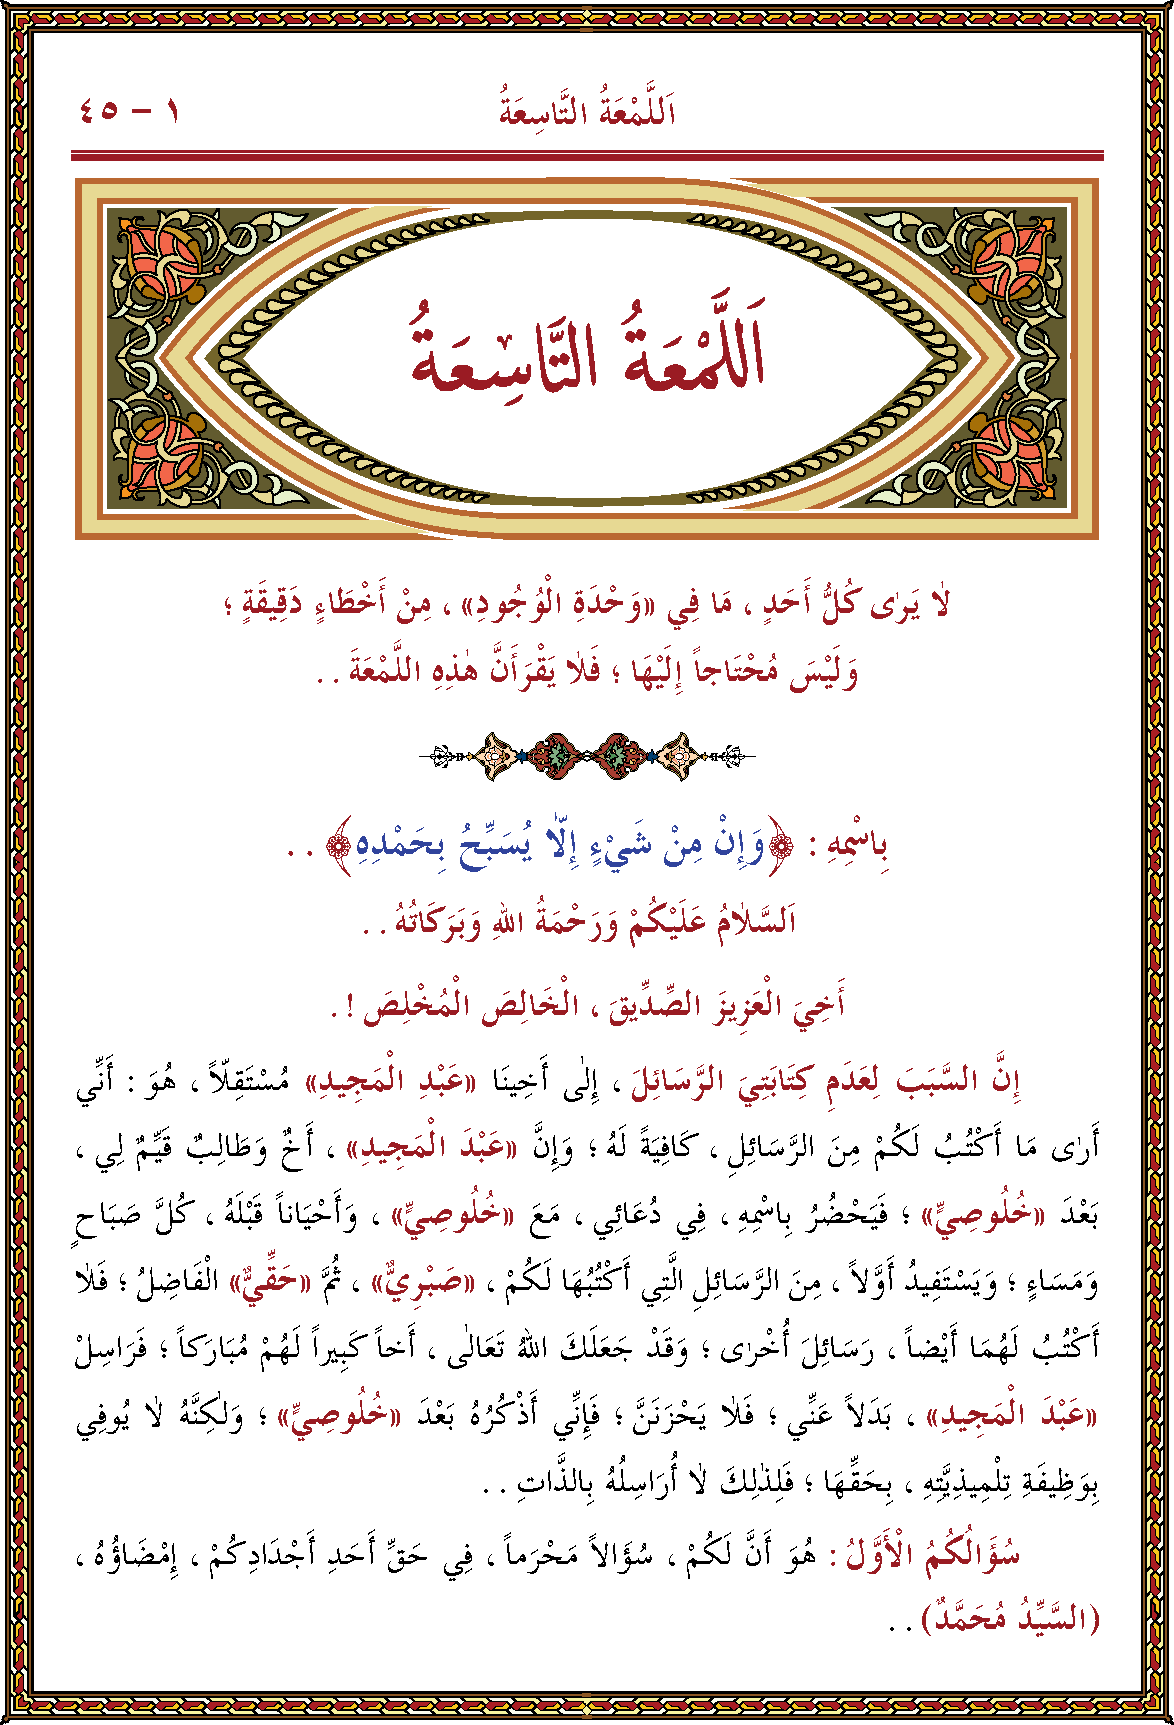 اَللَّمْعَةُ التَّاسِعَةُ
١ - ٤٥
اَللَّمْعَةُ التَّاسِعَةُ
لاٰ يَرٰى كُلُّ أَحَدٍ ، مَا فِي «وَحْدَةِ الْوُجُودِ» ، مِنْ أَخْطَاءٍ دَقِيقَةٍ ؛
وَلَيْسَ مُحْتَاجاً إِلَيْهَا ؛ فَلاٰ يَقْرَأَنَّ هٰذِهِ اللَّمْعَةَ . .
بِاسْمِهِ : ﴿وَإِنْ مِنْ شَيْءٍ إِلاّٰ يُسَبِّحُ بِحَمْدِهِ﴾ . .
اَلسَّلاٰمُ عَلَيْكُمْ وَرَحْمَةُ اللهِ وَبَرَكَاتُهُ . .
أَخِيَ الْعَزِيزَ الصِّدِّيقَ ، الْخَالِصَ الْمُخْلِصَ ! .
إِنَّ السَّبَبَ لِعَدَمِ كِتَابَتِيَ الرَّسَائِلَ ، إِلٰى أَخِينَا «عَبْدِ الْمَجِيدِ» مُسْتَقِلّاً ، هُوَ : أَنِّي
أَرٰى مَا أَكْتُبُ لَكُمْ مِنَ الرَّسَائِلِ ، كَافِيَةً لَهُ ؛ وَإِنَّ «عَبْدَ الْمَجِيدِ» ، أَخٌ وَطَالِبٌ قَيِّمٌ لِي ،
بَعْدَ «خُلُوصِيٍّ» ؛ فَيَحْضُرُ بِاسْمِهِ ، فِي دُعَائِي ، مَعَ «خُلُوصِيٍّ» ، وَأَحْيَاناً قَبْلَهُ ، كُلَّ صَبَاحٍ
وَمَسَاءٍ ؛ وَيَسْتَفِيدُ أَوَّلاً ، مِنَ الرَّسَائِلِ الَّتِي أَكْتُبُهَا لَكُمْ ، «صَبْرِيٌّ» ، ثُمَّ «حَقِّيٌّ» الْفَاضِلُ ؛ فَلاٰ
أَكْتُبُ لَهُمَا أَيْضاً ، رَسَائِلَ أُخْرٰى ؛ وَقَدْ جَعَلَكَ اللهُ تَعَالٰى ، أَخاً كَبِيراً لَهُمْ مُبَارَكاً ؛ فَرَاسِلْ
«عَبْدَ الْمَجِيدِ» ، بَدَلاً عَنِّي ؛ فَلاٰ يَحْزَنَنَّ ؛ فَإِنِّي أَذْكُرُهُ بَعْدَ «خُلُوصِيٍّ» ؛ وَلٰكِنَّهُ لاٰ يُوفِي
بِوَظِيفَةِ تِلْمِيذِيَّتِهِ ، بِحَقِّهَا ؛ فَلِذٰلِكَ لاٰ أُرَاسِلُهُ بِالذَّاتِ . .
سُؤَالُكُمُ الْأَوَّلُ : هُوَ أَنَّ لَكُمْ ، سُؤَالاً مَحْرَماً ، فِي حَقِّ أَحَدِ أَجْدَادِكُمْ ، إِمْضَاؤُهُ ،
(السَّيِّدُ مُحَمَّدٌ) . .